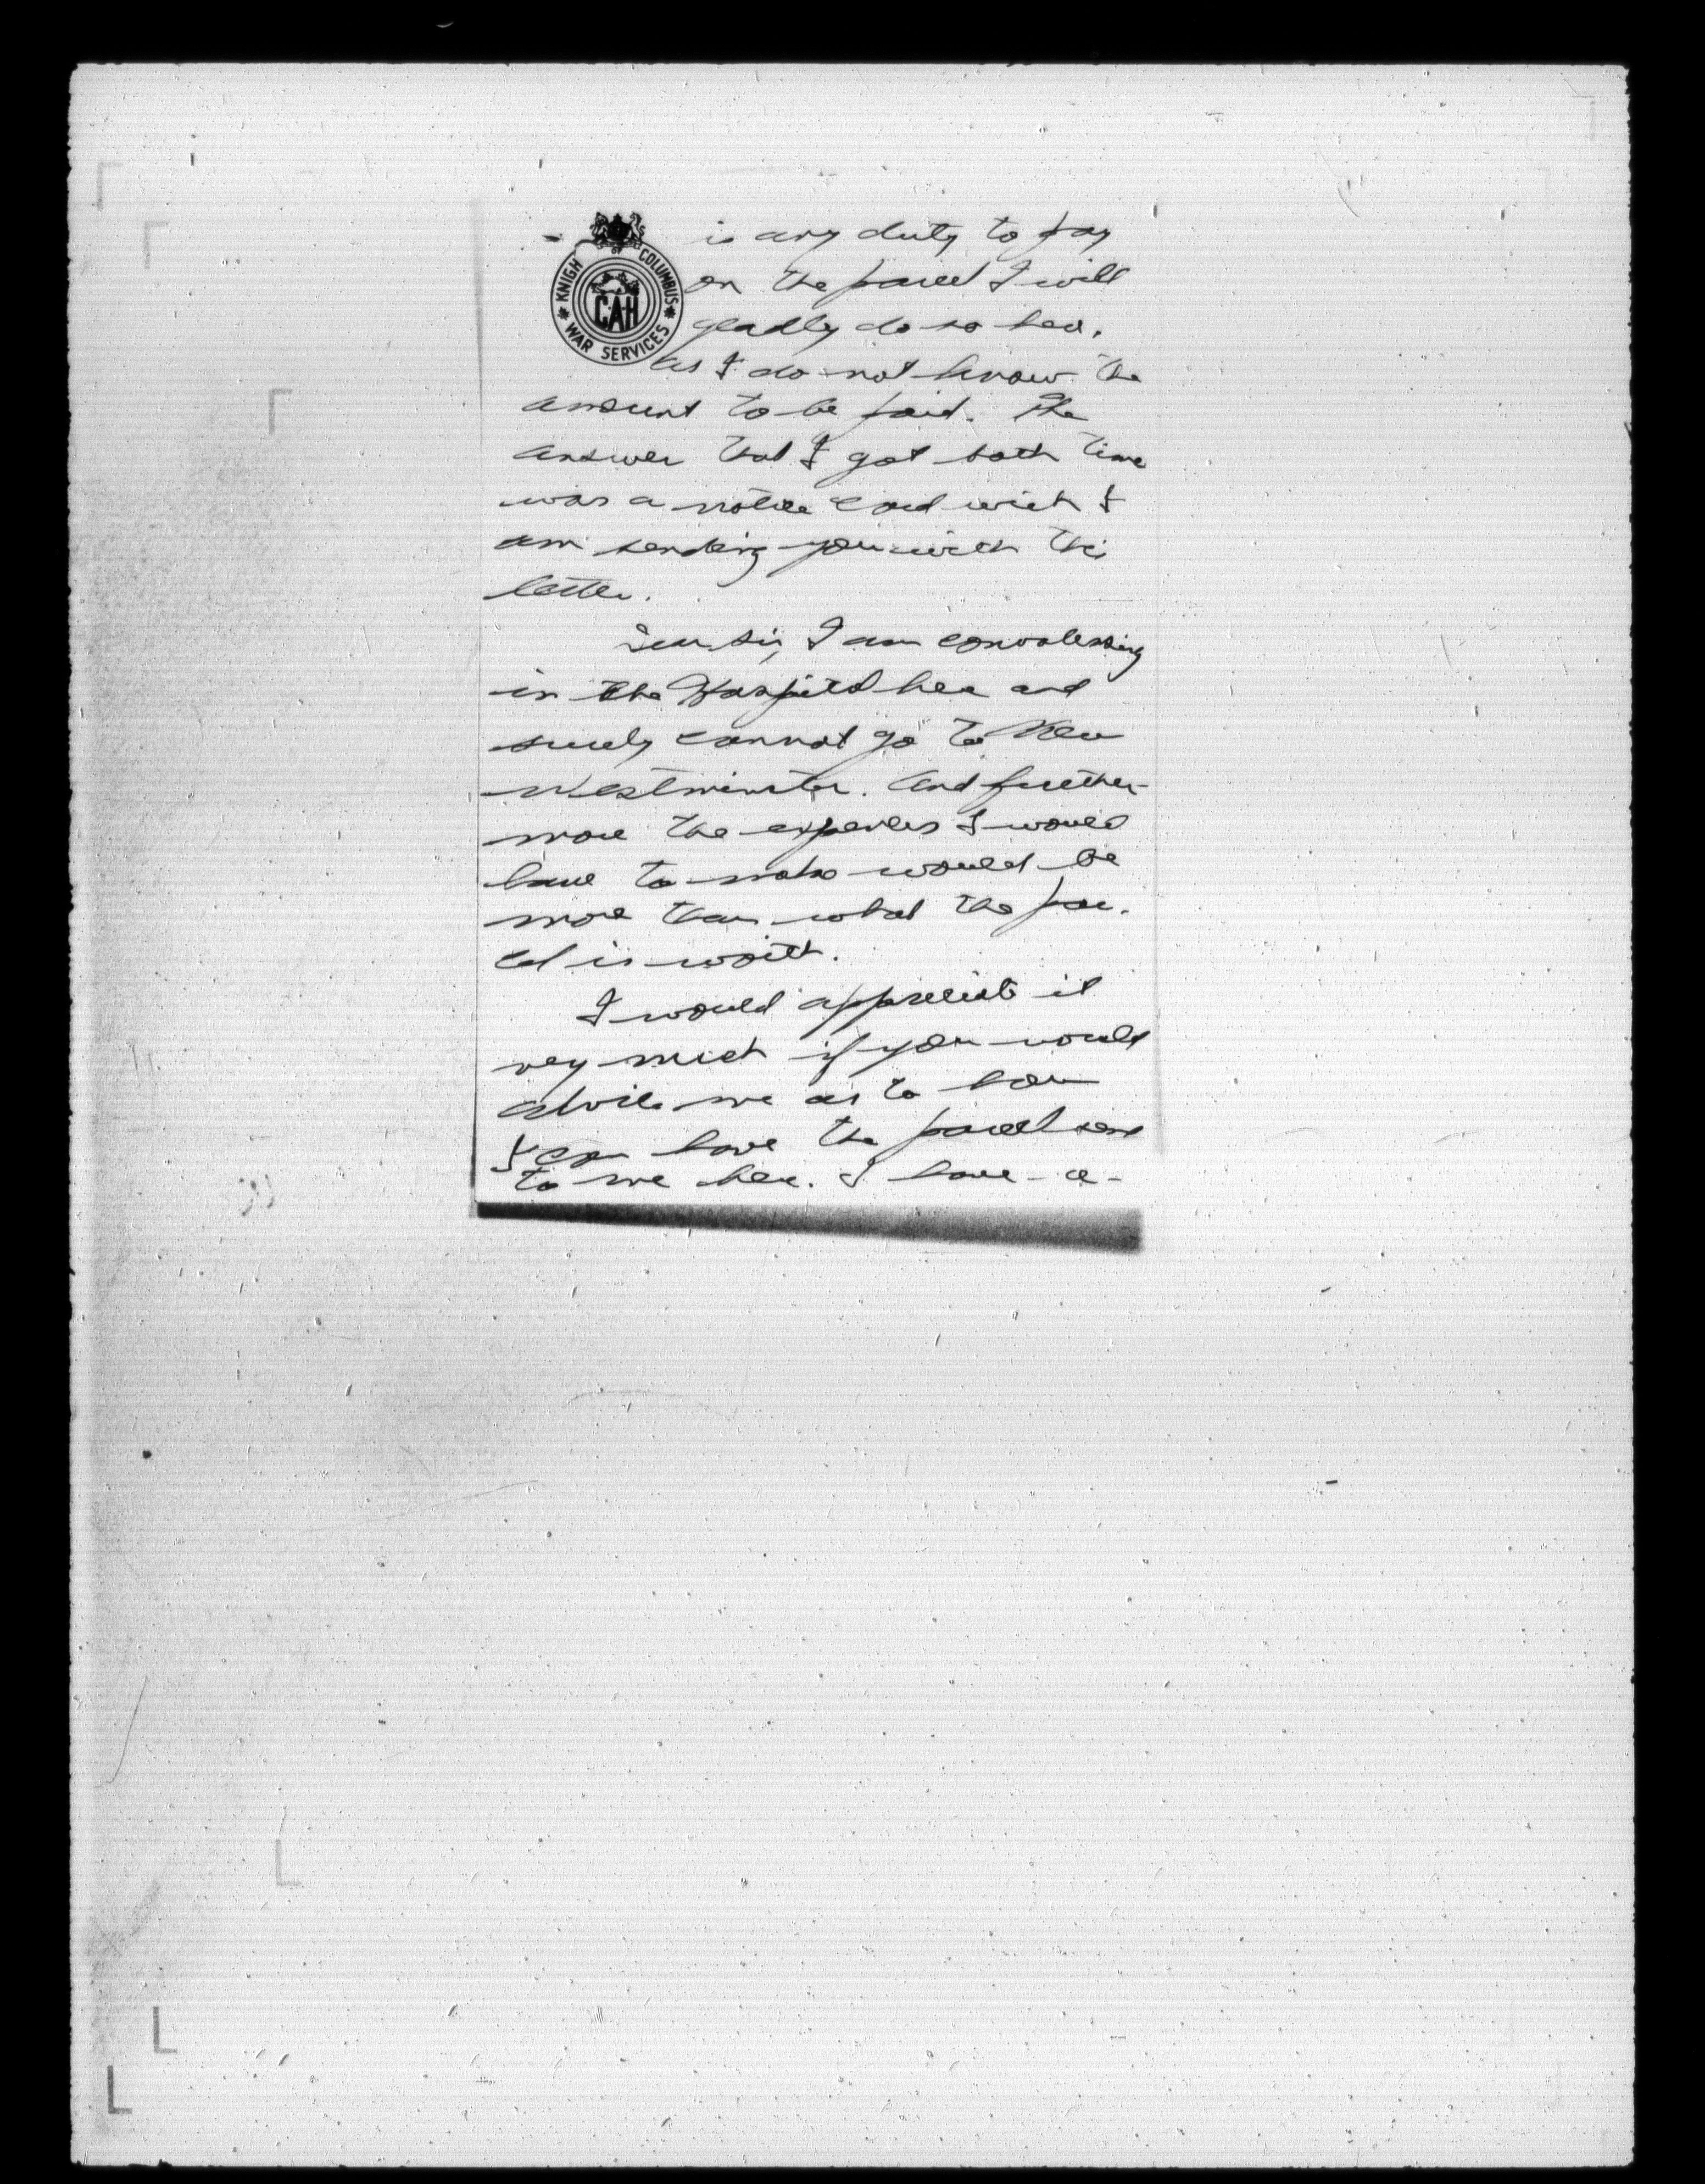 KNIGH OF COLUMBUS
CAH
WAR SERVICES
is any duty to pay
on the parcel I will
gladly do so hea.
as I do not know the
amount to be paid. The
answer that I got both time
was a notice card wich I
am sending you with this
letter.
Dear Sir, I am convalessing
in the Hospital hea and
surely cannot go to New
Westminster. And further-
more the expenses I would
have to make would be
more than what the par-
cel is worth.
I would appreciate it
very much if you would
advise me as to how
I can have the parcel send
to me hea. I have a-